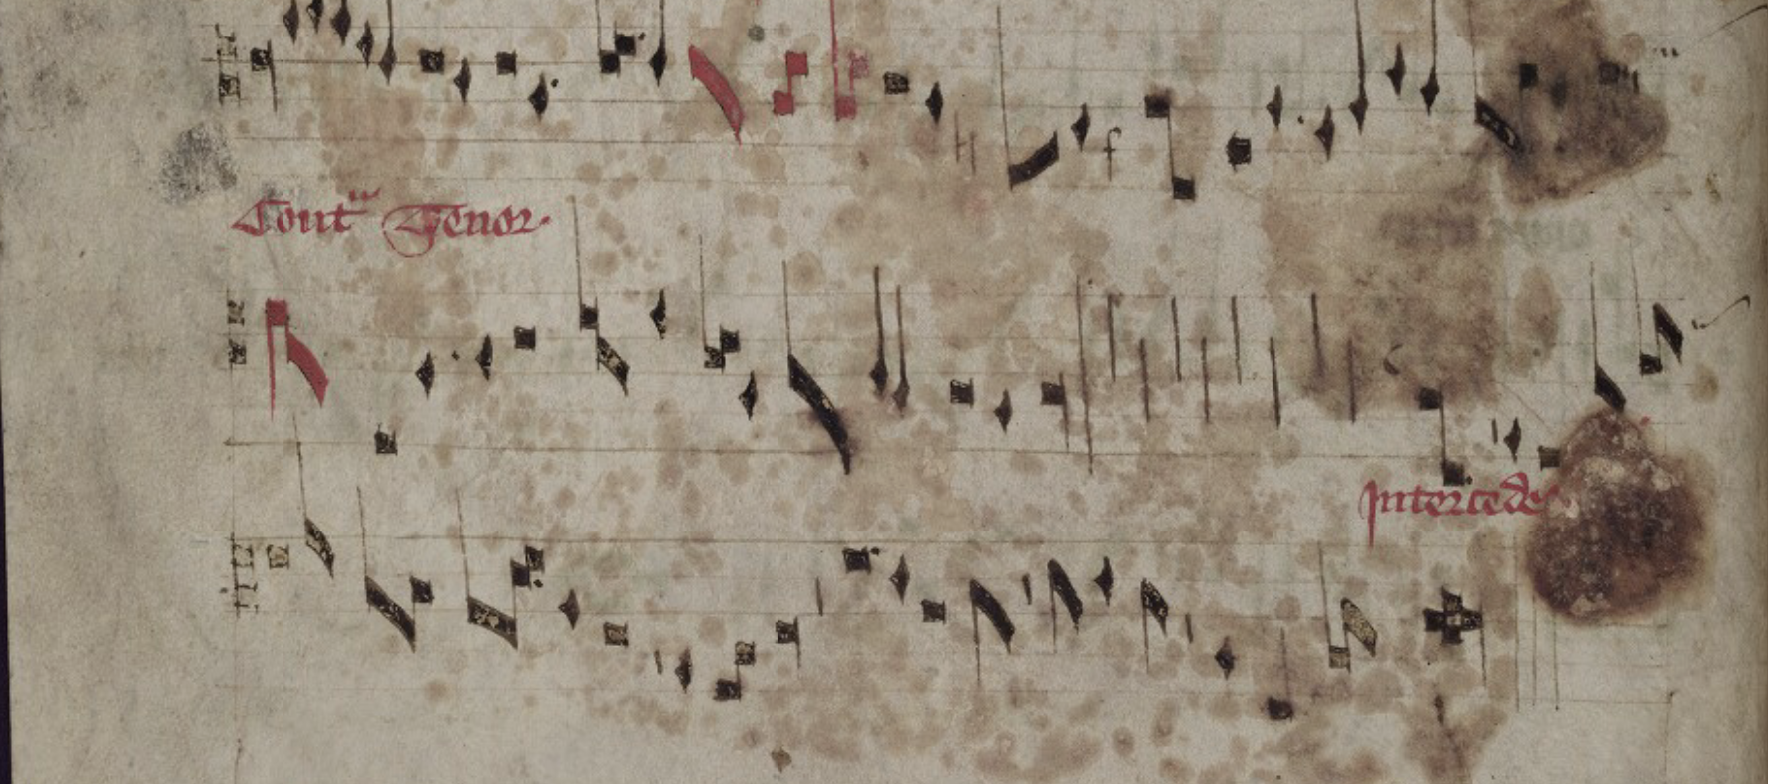 Cont^(ra) Tenor.
Intercede